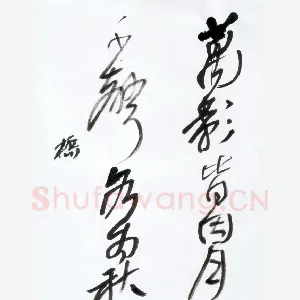 萬影皆因月
千聲各為秋
Shufawang.CN